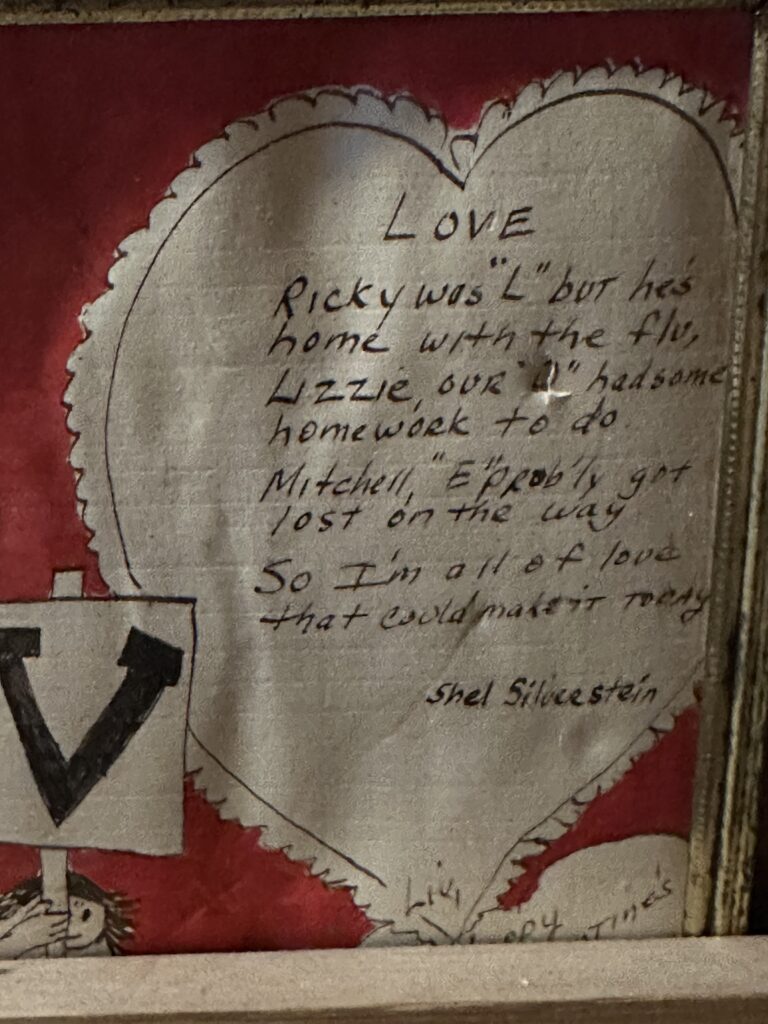 LOVE
Ricky was "L" but he's
home with the flu,
Lizzie, our "O" had some
homework to do.
Mitchell, "E" prob'ly got
lost on the way
So I'm all of love
that could make it TODAY
Shel Silverstein
V